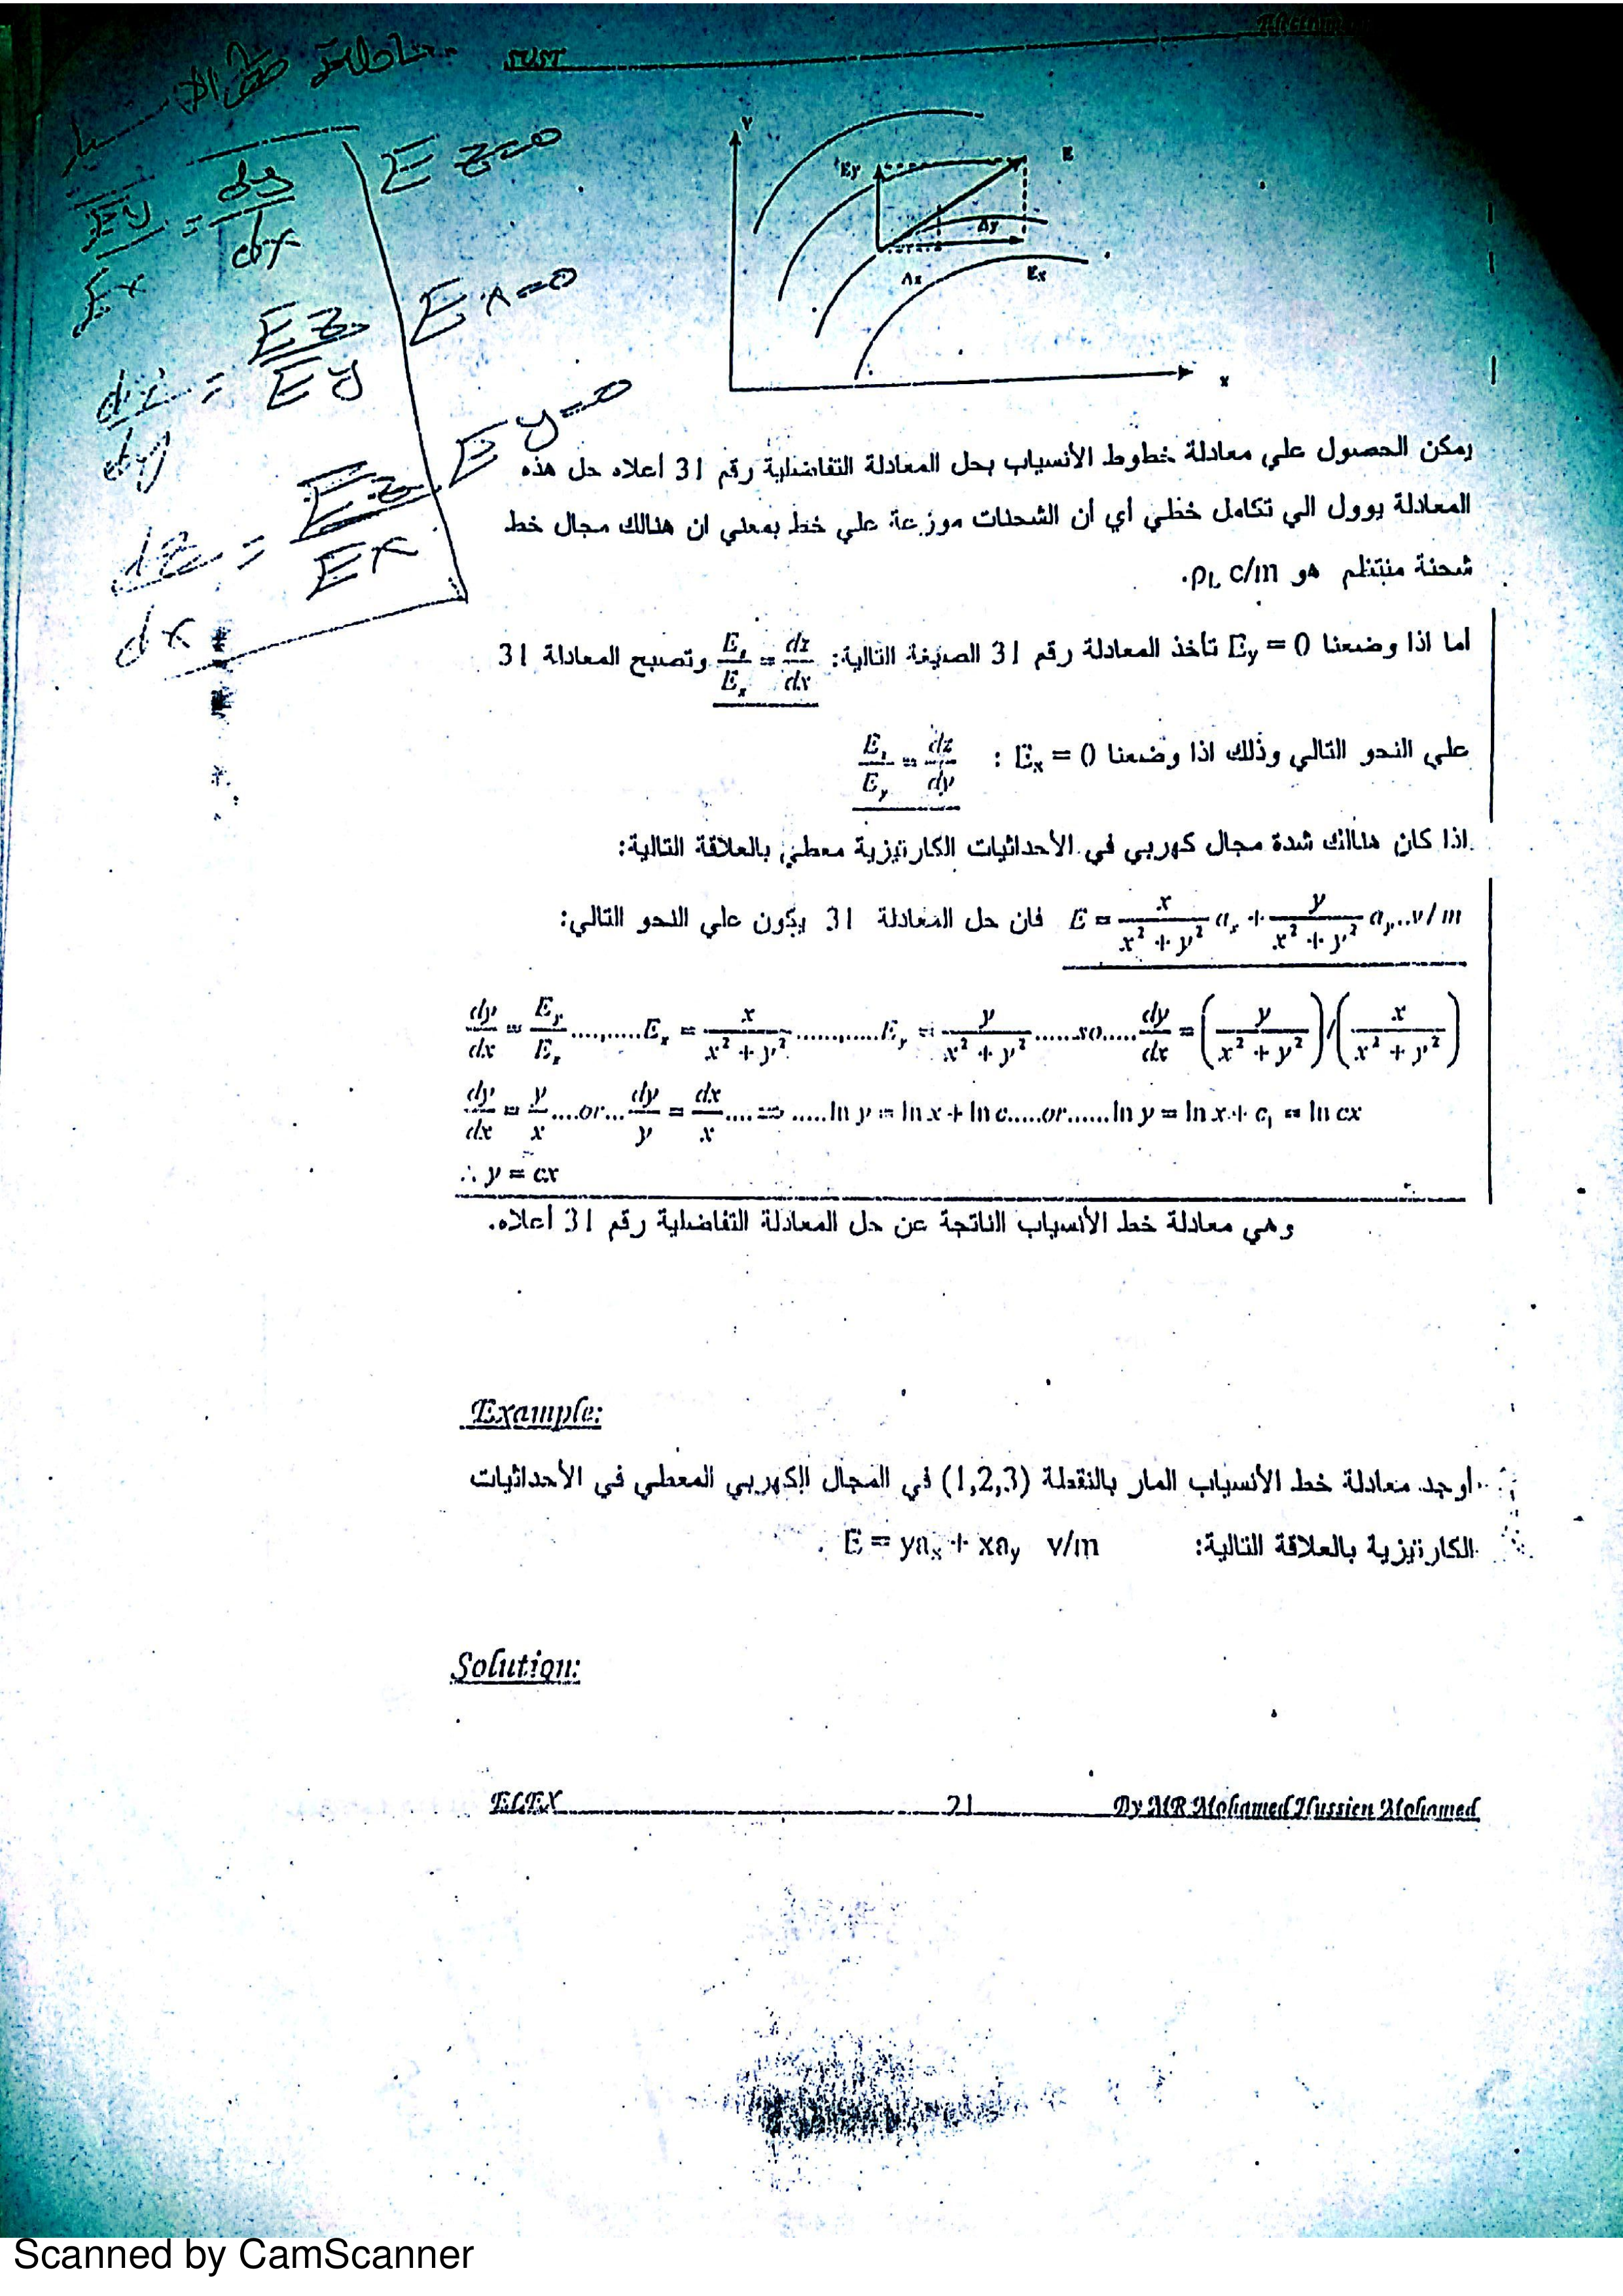 SUST
معادلة خطوط الانسياب
Ey/Ex = dy/dx
Ez=0
dz/dy = Ez/Ey
Ex=0
dz/dx = Ez/Ex
Ey=0
y
Ey
E
Δy
Δx
Ex
x
يمكن الحصول علي معادلة خطوط الأنسياب بحل المعادلة التفاضلية رقم 31 أعلاه حل هذه
المعادلة يوول الي تكامل خطي أي أن الشحنات موزعة علي خط بمعني ان هنالك مجال خط
شحنة منتظم هو ρL c/m.
أما اذا وضعنا Ey = 0 تأخذ المعادلة رقم 31 الصيغة التالية: Ez/Ex = dz/dx وتصبح المعادلة 31
علي النحو التالي وذلك اذا وضعنا Ex = 0 : Ez/Ey = dz/dy
اذا كان هنالك شدة مجال كهربي في الأحداثيات الكارتيزية معطي بالعلاقة التالية:
E = x/(x²+y²) ax + y/(x²+y²) ay..v/m فان حل المعادلة 31 يكون علي النحو التالي:
dy/dx = Ey/Ex..........Ex = x/(x²+y²)............Ey = y/(x²+y²)......so.....dy/dx = (y/(x²+y²))/(x/(x²+y²))
dy/dx = y/x....or...dy/y = dx/x....⇒.....ln y = ln x + ln c.....or......ln y = ln x + c₁ = ln cx
∴ y = cx
وهي معادلة خط الأنسياب الناتجة عن حل المعادلة التفاضلية رقم 31 أعلاه.
Example:
أوجد معادلة خط الأنسياب المار بالنقطة (1,2,3) في المجال الكهربي المعطي في الأحداثيات
الكارتيزية بالعلاقة التالية: E = yax + xay v/m .
Solution:
ELEX 21 By MR Mohamed Hussien Mohamed
Scanned by CamScanner